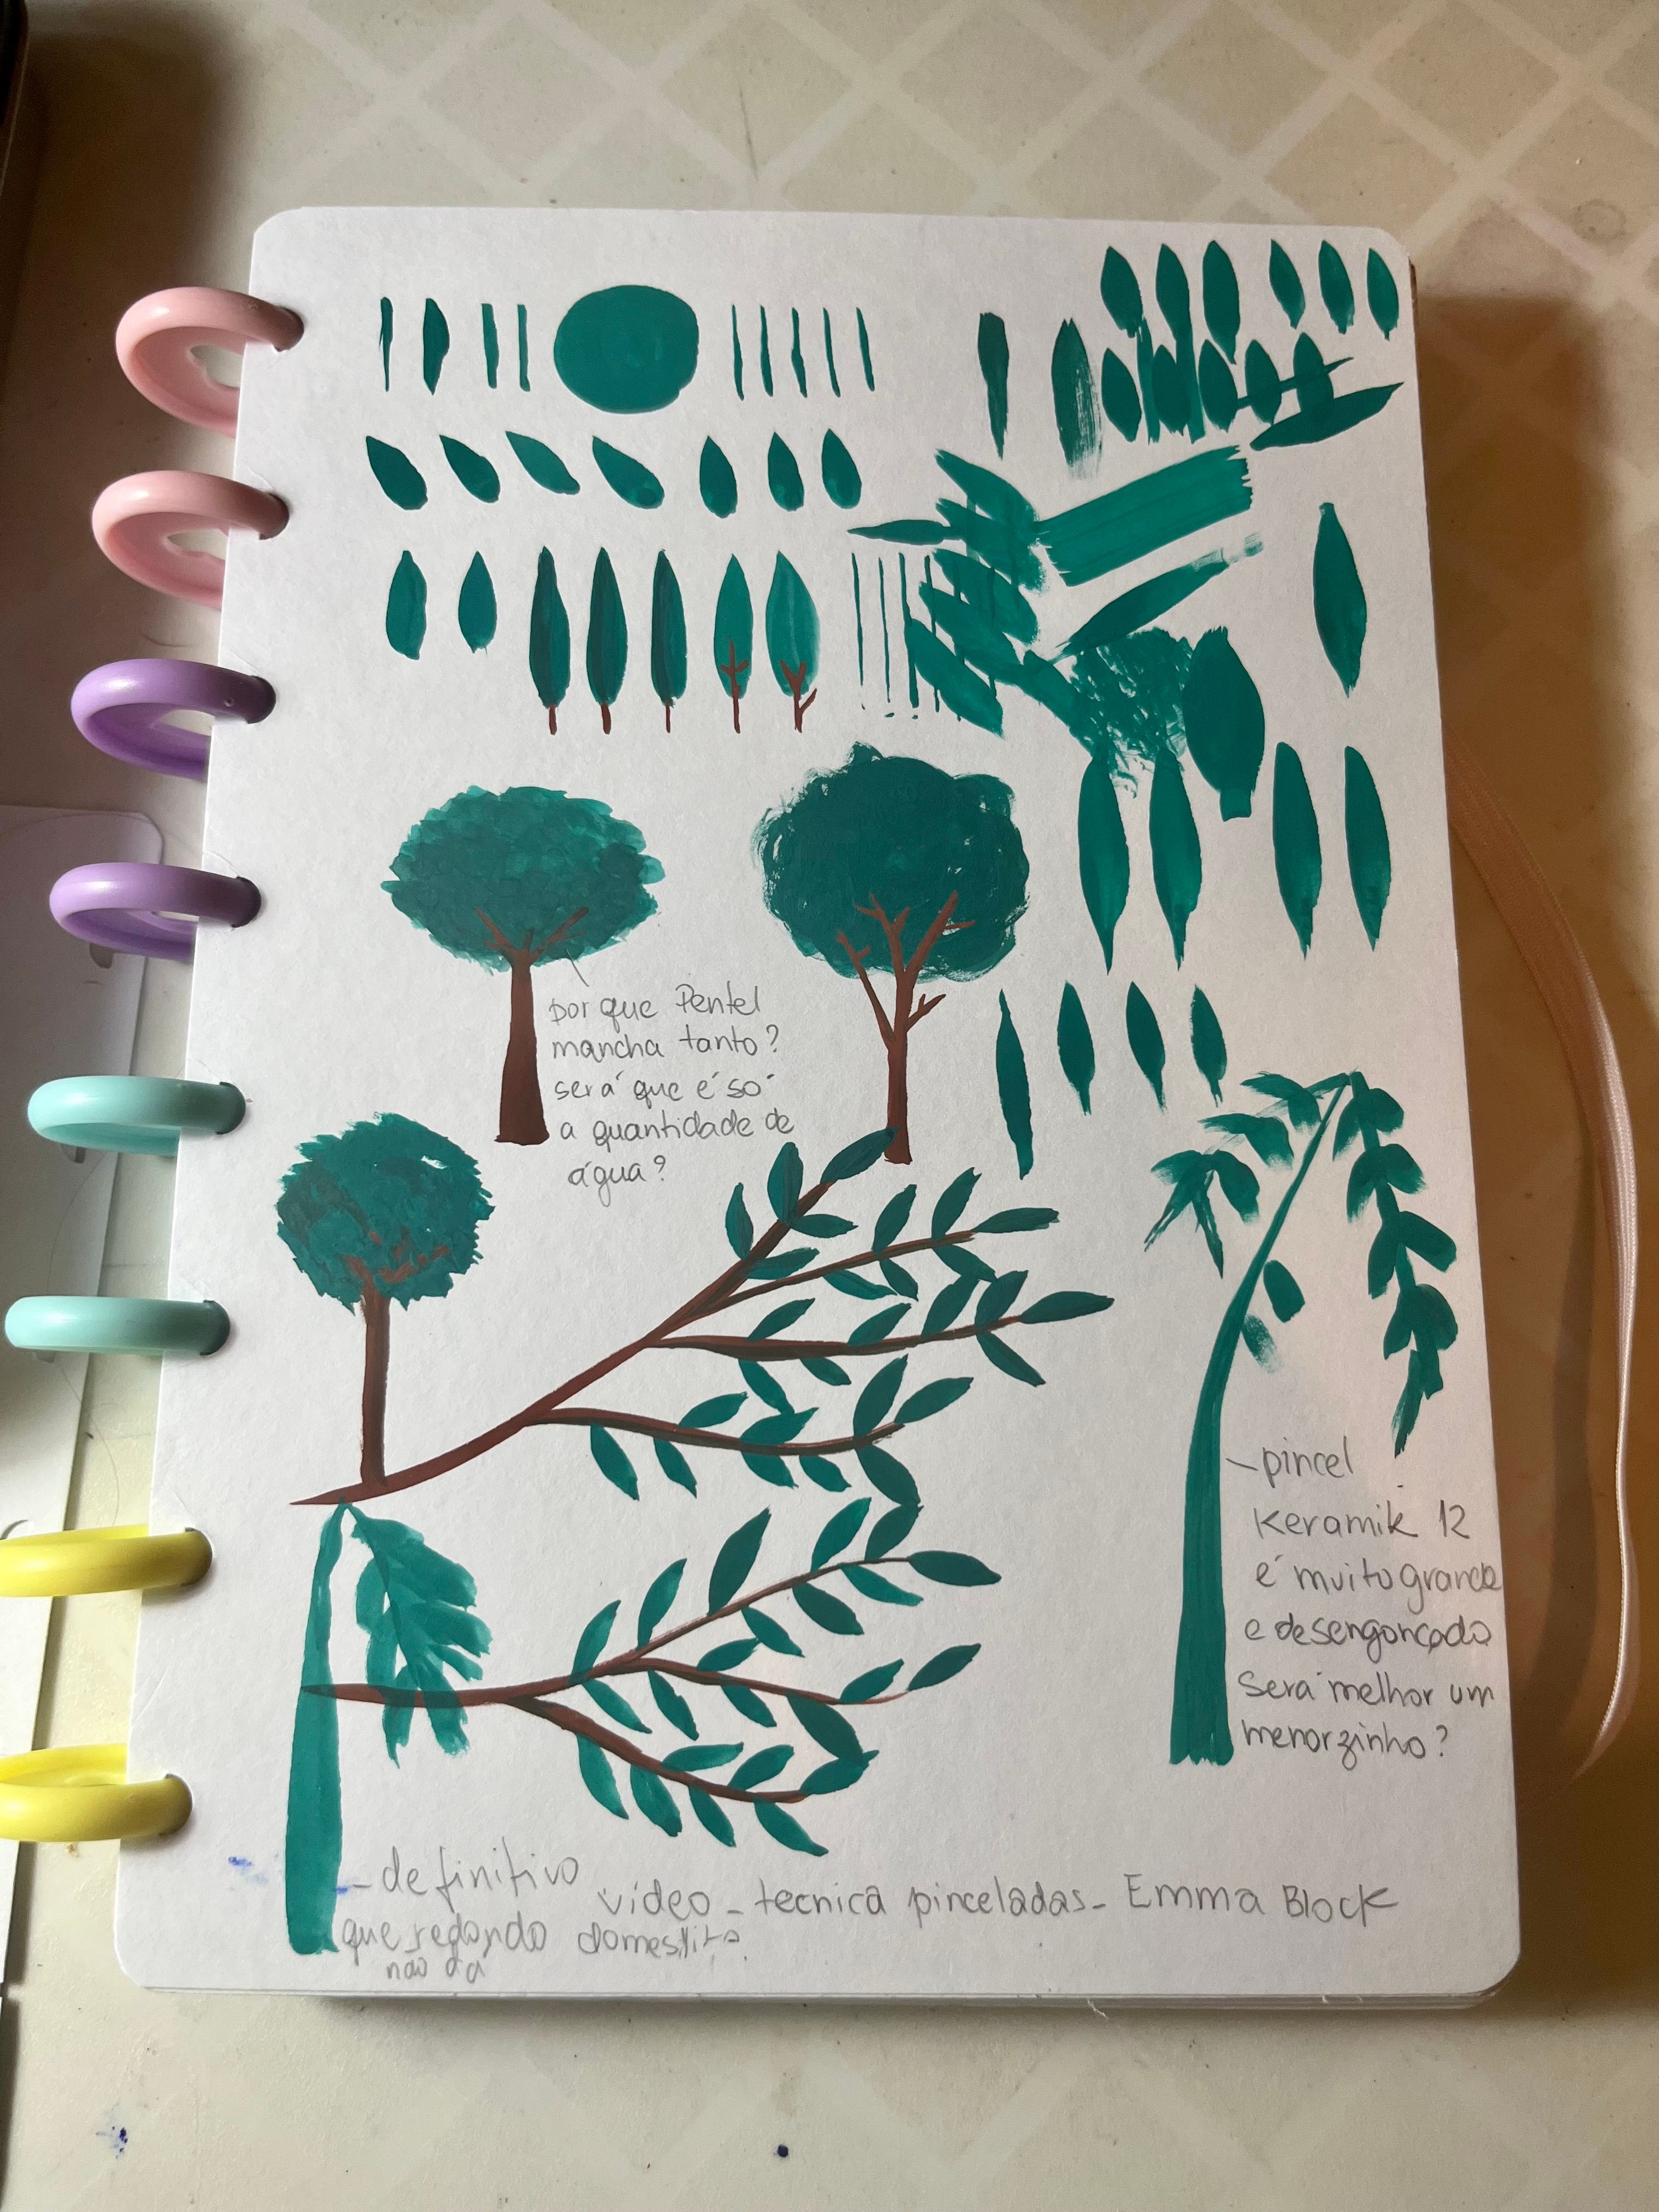 por que Pentel
mancha tanto?
será que é só
a quantidade de
água?
pincel
Keramik 12
é muito grande
e desengonçado
Será melhor um
menorzinho?
definitivo
que redondo
não dá
vídeo - tecnica pinceladas - Emma Block